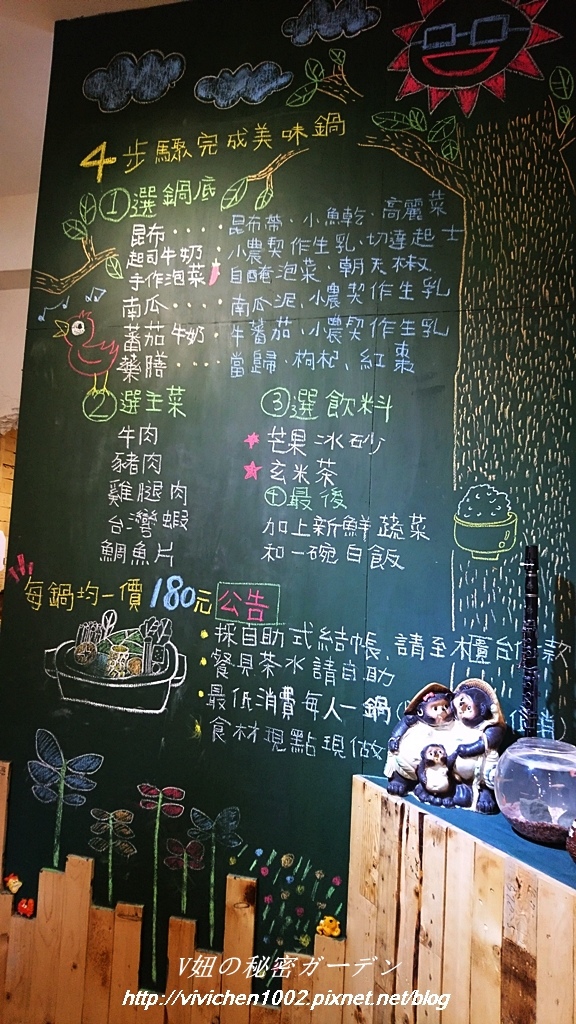 4步驟完成美味鍋
①選鍋底
昆布····昆布帶·小魚乾·高麗菜
起司牛奶·小農契作生乳·切達起士
手作泡菜 自醃泡菜·朝天椒
南瓜····南瓜泥、小農契作生乳
蕃茄牛奶·牛蕃茄·小農契作生乳
藥膳····當歸·枸杞、紅棗
②選主菜
牛肉
豬肉
雞腿肉
台灣蝦
鯛魚片
③選飲料
芒果冰砂
玄米茶
④最後
加上新鮮蔬菜
和一碗白飯
每鍋均一價180元
公告
採自助式結帳,請至櫃台付款
餐具茶水請自助
最低消費每人一鍋(
食材現點現做
V妞の秘密ガーデン
http://vivichen1002.pixnet.net/blog